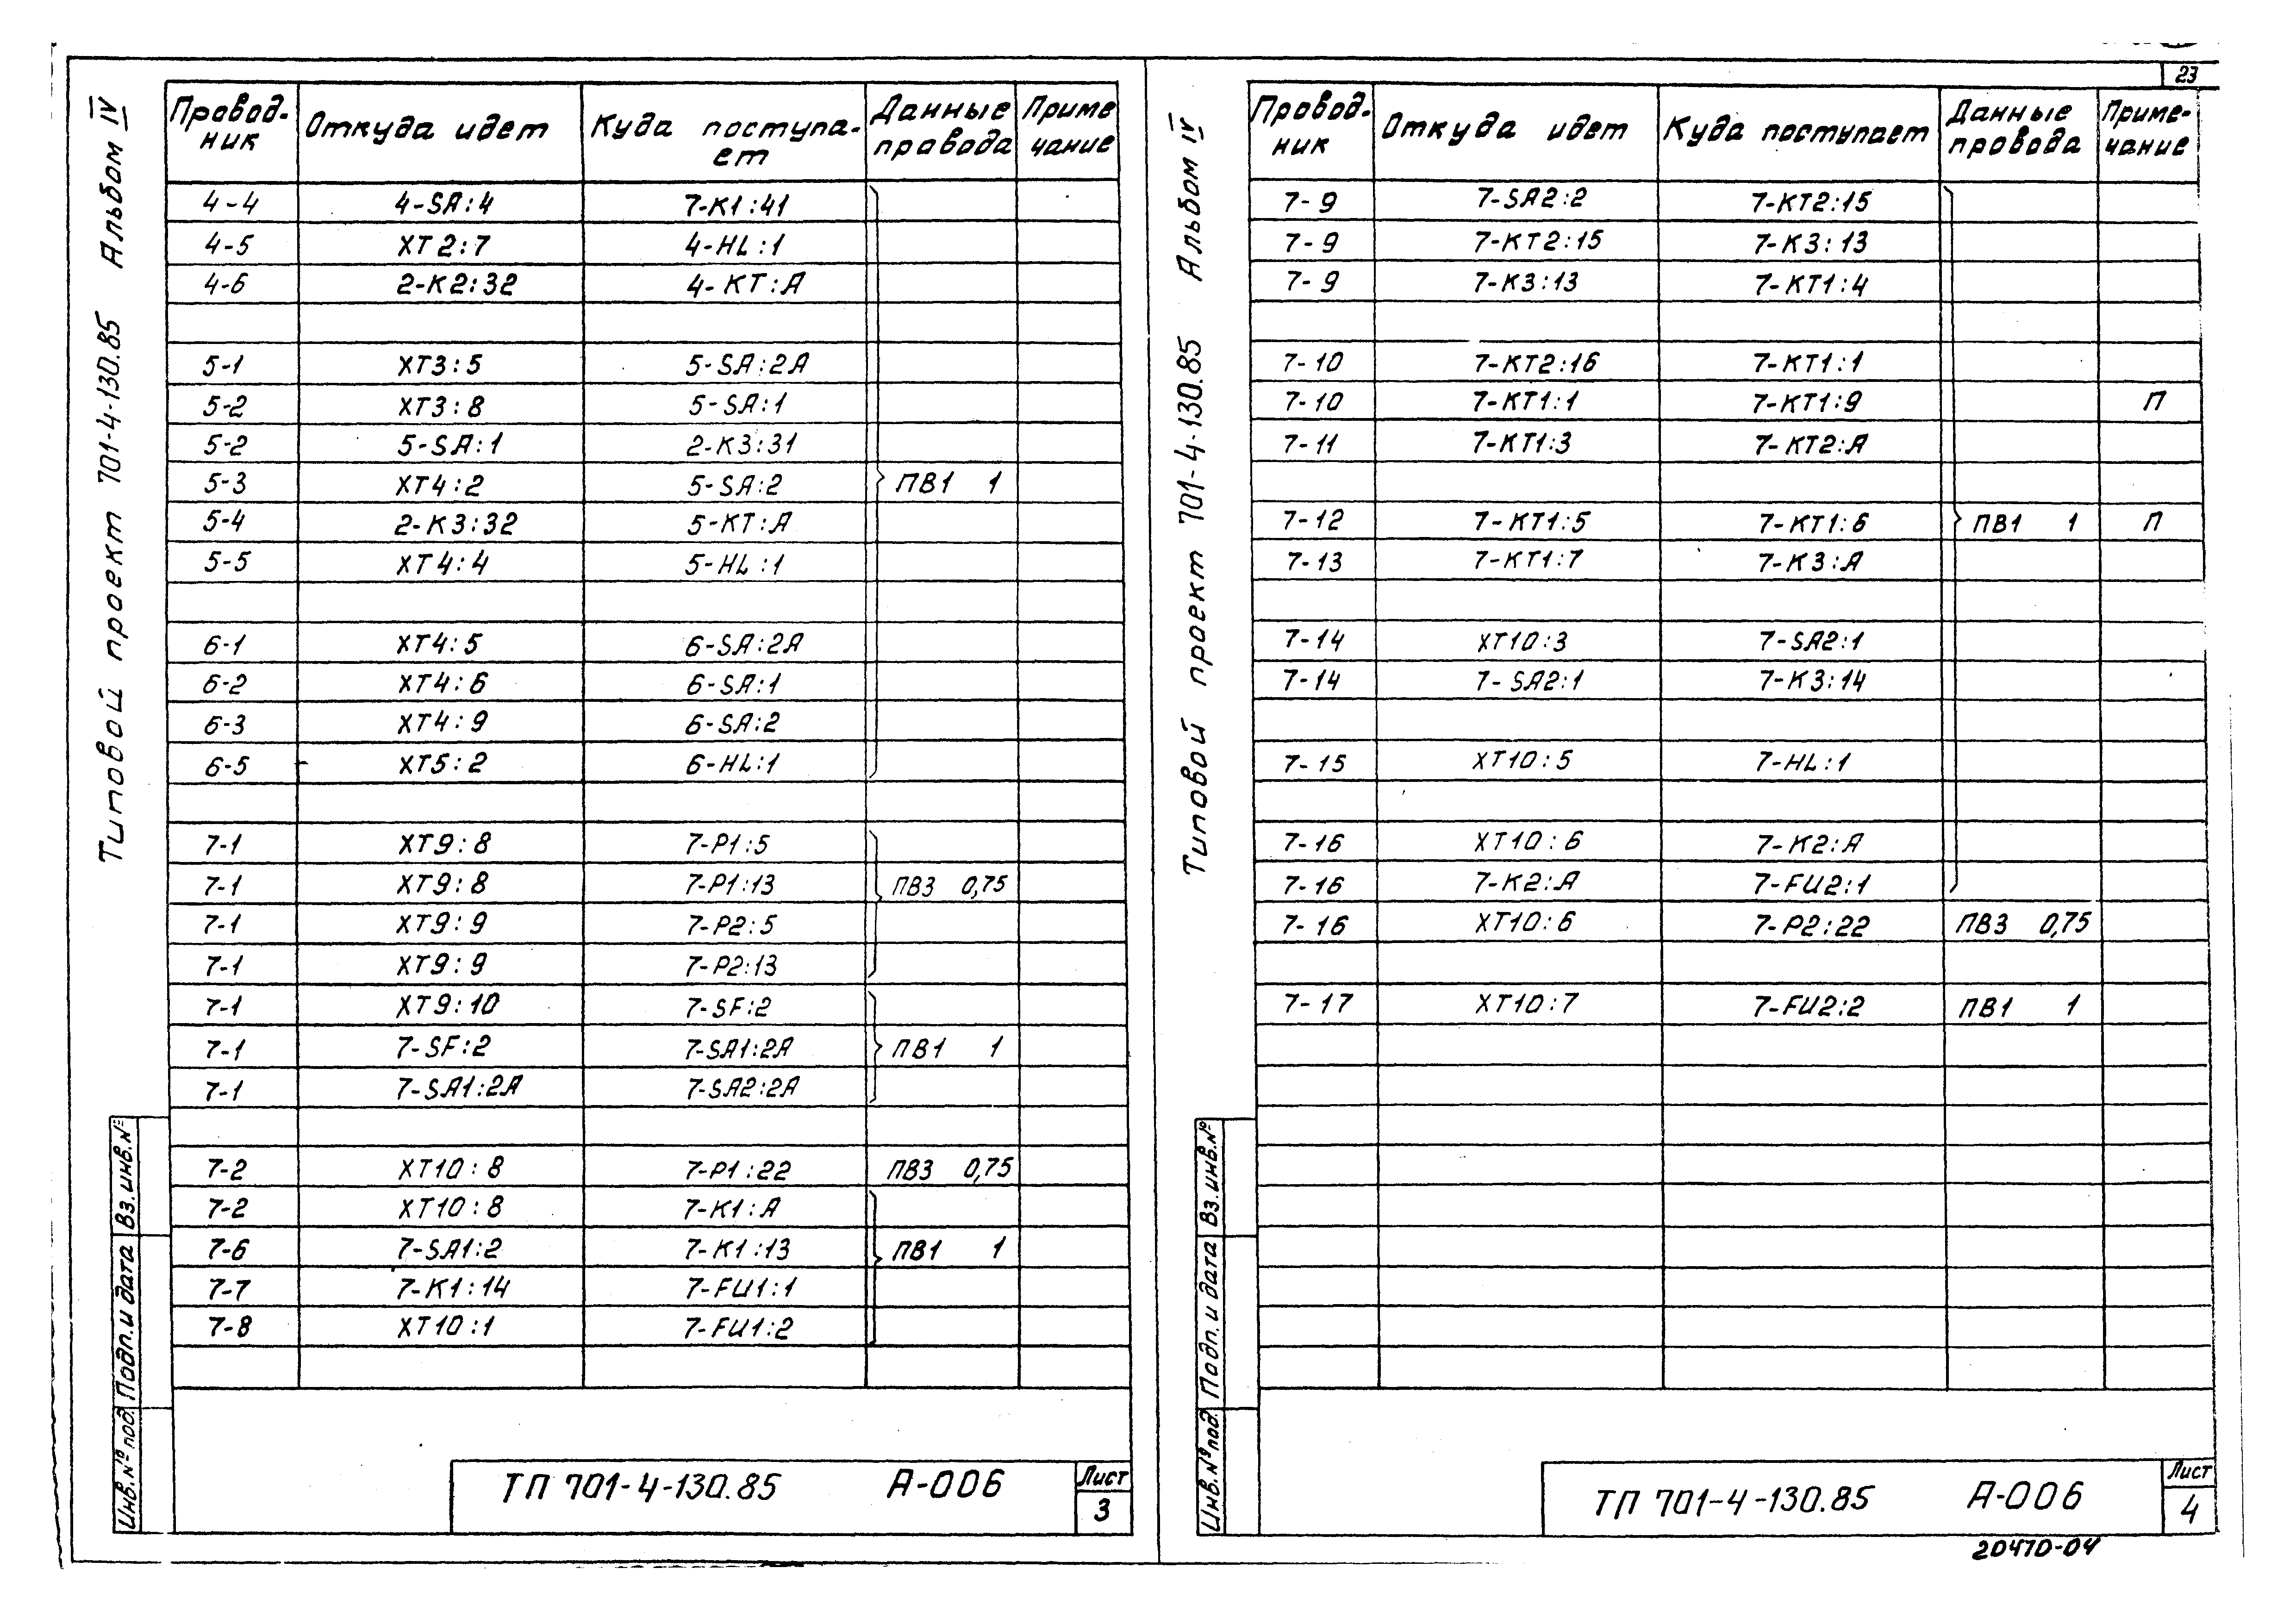 23
Типовой проект 701-4-130.85 Альбом IV
Провод-ник Откуда идет Куда поступа-ет Данные провода Приме чание
4-4 4-SA:4 7-K1:41
4-5 XT2:7 4-HL:1
4-6 2-K2:32 4-KT:A
5-1 XT3:5 5-SA:2A
5-2 XT3:8 5-SA:1
5-2 5-SA:1 2-K3:31
5-3 XT4:2 5-SA:2 ПВ1 1
5-4 2-K3:32 5-KT:A
5-5 XT4:4 5-HL:1
6-1 XT4:5 6-SA:2A
6-2 XT4:6 6-SA:1
6-3 XT4:9 6-SA:2
6-5 XT5:2 6-HL:1
7-1 XT9:8 7-P1:5
7-1 XT9:8 7-P1:13 ПВ3 0,75
7-1 XT9:9 7-P2:5
7-1 XT9:9 7-P2:13
7-1 XT9:10 7-SF:2
7-1 7-SF:2 7-SA1:2A ПВ1 1
7-1 7-SA1:2A 7-SA2:2A
7-2 XT10:8 7-P1:22 ПВ3 0,75
7-2 XT10:8 7-K1:A
7-6 7-SA1:2 7-K1:13 ПВ1 1
7-7 7-K1:14 7-FU1:1
7-8 XT10:1 7-FU1:2
Инв.№ под. Подп. и дата Вз.инв.№
ТП 701-4-130.85 А-006 Лист 3
Типовой проект 701-4-130.85 Альбом IV
Провод-ник Откуда идет Куда поступает Данные провода Приме-чание
7-9 7-SA2:2 7-KT2:15
7-9 7-KT2:15 7-K3:13
7-9 7-K3:13 7-KT1:4
7-10 7-KT2:16 7-KT1:1
7-10 7-KT1:1 7-KT1:9 П
7-11 7-KT1:3 7-KT2:A
7-12 7-KT1:5 7-KT1:6 ПВ1 1 П
7-13 7-KT1:7 7-K3:A
7-14 XT10:3 7-SA2:1
7-14 7-SA2:1 7-K3:14
7-15 XT10:5 7-HL:1
7-16 XT10:6 7-K2:A
7-16 7-K2:A 7-FU2:1
7-16 XT10:6 7-P2:22 ПВ3 0,75
7-17 XT10:7 7-FU2:2 ПВ1 1
Инв.№ под. Подп. и дата Вз.инв.№
ТП 701-4-130.85 А-006 Лист 4
20470-04